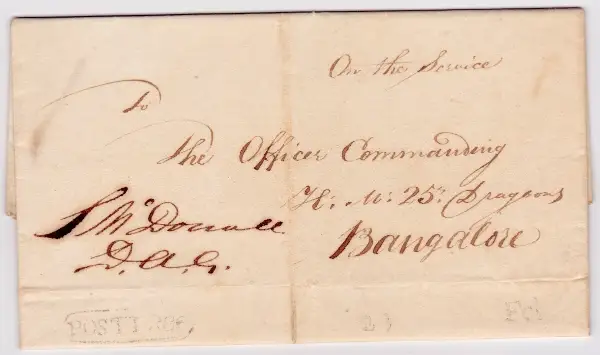 On the Service
To
The Officer Commanding
H: M: 25: Dragoons
Bangalore
McDonall
D.A.G.
POST